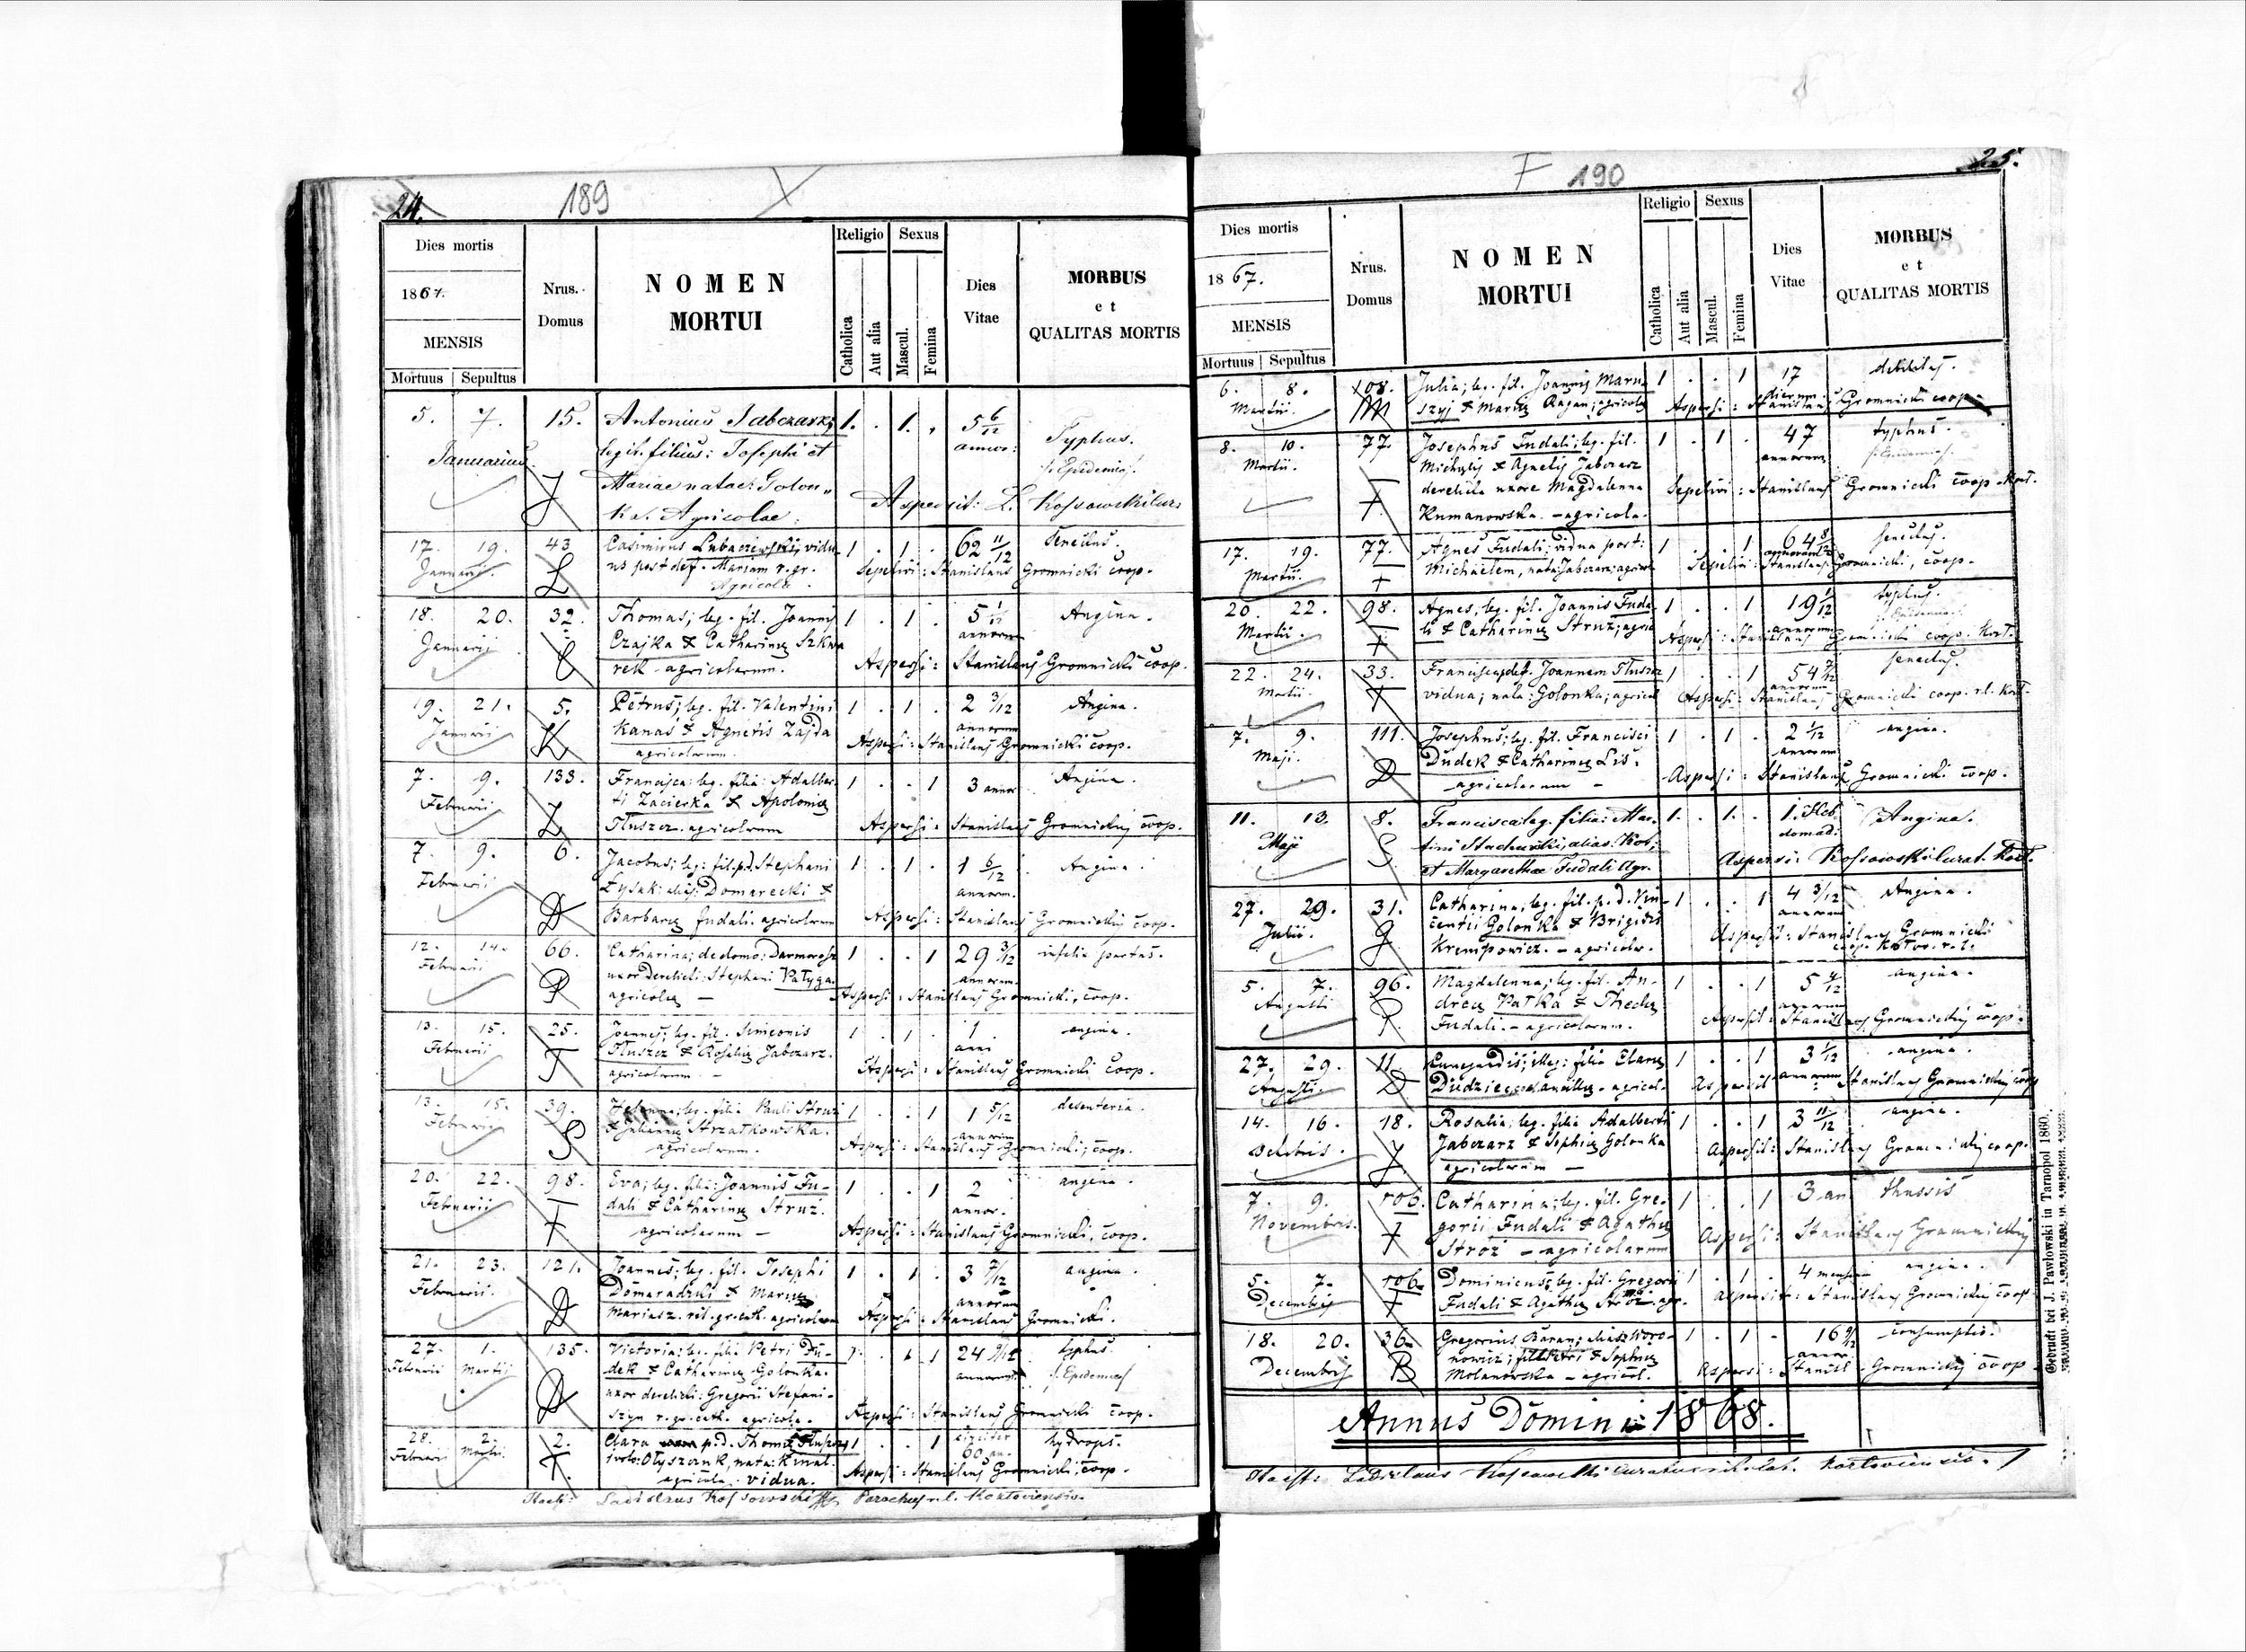 24.
189
Dies mortis
1867.
MENSIS
Mortuus Sepultus
Nrus. Domus
NOMEN MORTUI
Religio
Catholica
Aut alia
Sexus
Mascul.
Femina
Dies Vitae
MORBUS et QUALITAS MORTIS
5. 7. 15. Antonius Jabczarz; 1. . 1. . 5 6/12
Januarius legit. filius: Josephi et annor: Typhus.
Mariae natae: Golon„ Epidemia
ka. Agricolae. Aspersit: L. Kossowski
17. 19. 43 Casimirus Lubaczewski, vidu- 1 . 1 . 62 11/12 Senectus.
Januarii. us post def. Mariam r. gr. Sepelivi: Stanislaus Gromnicki coop.
Agricola
18. 20. 32. Thomas; leg. fil. Joannis 1 . 1 . 5 Angina.
Januarii Czajka & Catharinae Szkwa annorum
rek - agricolarum. Aspersi: Stanislaus Gromnicki coop.
19. 21. 5. Petrus; leg. fil. Valentini 1 . 1 . 2 3/12 Angina.
Januarii Kanas & Agnetis Zajda annorum
agricolarum. Aspersi: Stanislaus Gromnicki coop.
7. 9. 133. Francisca: leg. filia: Adalber- 1 . . 1 3 annor. Angina.
Februarii ti Zacierka & Apoloniae
Tluszcz. agricolarum Aspersi: Stanislaus Gromnicki coop.
7. 9. 6. Jacobus; leg: fil. p.d. Stephani 1 . 1 . 1 6/12 Angina.
Februarii Łysak: alias: Domarecki & annorum.
Barbarae Fudali. agricolarum Aspersi: Stanislaus Gromnicki coop.
12. 14. 66. Catharina; de domo: Darmorosz 1 . . 1 29 3/12 infelix partus.
Februarii uxor derelicti: Stephani Patyga. annorum
agricolae — Aspersi: Stanislaus Gromnicki, coop.
13. 15. 25. Joannes; leg. fil. Simeonis 1 . 1 . 1 angina.
Februarii Tluszcz & Rosaliae Jabczarz. anni
agricolarum. — Aspersi: Stanislaus Gromnicki coop.
13. 15. 39. leg. filia Pauli 1 . . 1 1 5/12 desenteria.
Februarii & Julianna Strzałkowska. annorum
agricolarum. Aspersi: Stanislaus Gromnicki; coop.
20. 22. 98. Eva; leg. filia: Joannis Fu- 1 . . 1 2 angina.
Februarii dali & Catharinae Struz. annor.
agricolarum — Aspersi: Stanislaus Gromnicki, coop.
21. 23. 121. Joannes; leg. fil. Josephi 1 . 1 . 3 7/12 angina.
Februarii. Domaradzki & Mariae annorum
Mariasz. rit. gr. cath. agricolarum Aspersi: Stanislaus Gromnicki.
27 1. 135. Victoria; leg. filia Petri Du- 1 24 9/12 typhus.
Februarii Martii dek & Catharinae Golonka. annorum. Epidemia
uxor derelicti: Gregorii Stefani-
szyn r. gr. cath. agricola. Aspersi: Stanislaus Gromnicki coop.
28. 2. 2. Clara p.d. Thomae Tluszcz 1 . . 1 circiter hydrops.
Februarii Martii. nata: 60 an.
agricola. vidua. Aspersi: Stanislaus Gromnicki, coop.
Ladislaus Kossowski Parochus r. l. Kortoviensis.
F 190
25.
Dies mortis
1867.
MENSIS
Mortuus Sepultus
Nrus. Domus
NOMEN MORTUI
Religio
Catholica
Aut alia
Sexus
Mascul.
Femina
Dies Vitae
MORBUS et QUALITAS MORTIS
6. 8. 108. Julia; leg. fil. Joannis Maru- 1 . . 1 17 debilitas.
Martii. szyj & Mariae Ragan; agricolae dierum Aspersi: Stanislaus Gromnicki coop.
8. 10. 77. Josephus Fudali; leg. fil. 1 . 1 . 47 typhus.
Martii. Michaelis & Agnetis Jabczarz annorum
derelicta uxore Magdalenna Sepelivi: Stanislaus Gromnicki coop. Kort.
Kumanowska. - agricola.
17. 19. 77. Agnes Fudali; vidua post: 1 1 64 8/12 senectus.
Martii. Michaelem, nata: Jabczarz; agricola annorum Sepelivi: Stanislaus Gromnicki, coop.
20. 22. 98. Agnes, leg. fil. Joannis Fuda- 1 . . 1 19 1/12 typhus.
Martii. li & Catharinae Struz; agric. annorum Aspersi: Stanislaus Gromnicki coop. Kort.
22. 24. 33. Francisca def. Joannem Tluszcz 1 . . 1 54 7/12 senectus.
Martii. vidua; nata: Golonka; agricol. annorum Aspersi: Stanislaus Gromnicki coop. r.l. Kort.
7. 9. 111. Josephus; leg. fil. Francisci 1 . 1 . 2 1/12 angina.
Maji. Dudek & Catharinae Lis. annorum
agricolarum — Aspersi: Stanislaus Gromnicki coop.
11. 13. 8. Francisca leg. filia: Mar. 1. . 1. . 1. Heb Angina.
Maji tini alias: Kos; domadi.
et Margarethae Fudali Agr. Aspersi: Kossowski Curat. Kort.
27. 29. 31. Catharina; leg. fil. p.d. Vin- 1 . . 1 4 3/12 Angina.
Julii. centii Golonka & Brigidis annorum Aspersit: Stanislaus Gromnicki
Krempowicz. — agricolar. coop. Kortov. r. l.
5. 7. 96. Magdalenna; leg. fil. An- 1 . . 1 5 4/12 angina.
Augusti dreae Patka & Theclae annorum
Fudali. — agricolarum. Aspersit: Stanislaus Gromnicki coop.
27. 29. 11. Cunegundis; illeg: filia Clarae 1 . . 1 3 1/12 angina.
Augusti. ancillae - agricol. annorum Aspersit Stanislaus Gromnicki coop
14. 16. 18. Rosalia; leg. filia Adalberti 1 . . 1 3 11/12 angina.
Octobris. Jabczarz & Sophiae Golonka Aspersit: Stanislaus Gromnicki coop.
agricolarum —
7. 9. 106. Catharina; leg. fil. Gre- 1 . . 1 3 an thussis
Novembris. gorii Fudali & Agathae Aspersi: Stanislaus Gromnicki
Stroż — agricolarum
5. 7. 106. Dominicus; leg. fil. Gregorii 1 . 1 . 4 mensium angina.
Decembris Fudali & Agathae Stroż agr. Aspersit: Stanislaus Gromnicki coop
18. 20. 36. Gregorius Baran; alias Woro- 1 . 1 . 16 9/12 consumptio.
Decembris nowicz; fil. Petri & Sophiae annor.
Molanowska — agricol. Aspersi: Stanisl. Gromnicki coop
Annus Domini 1868.
Ladislaus Kossowski Curatus rit. lat. Kortoviensis.
Gedruckt bei J. Pawłowski in Tarnopol 1860.